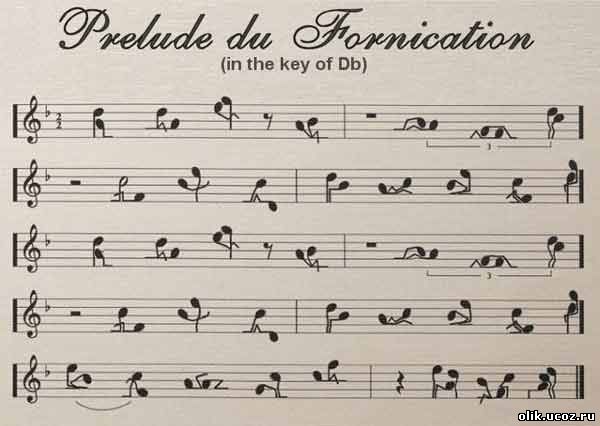 Prelude du Fornication
(in the key of Db)
2
2
3
3
olik.ucoz.ru